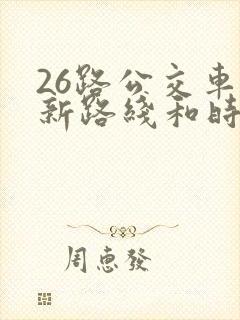 26路公交車
新路綫和時
周恵發